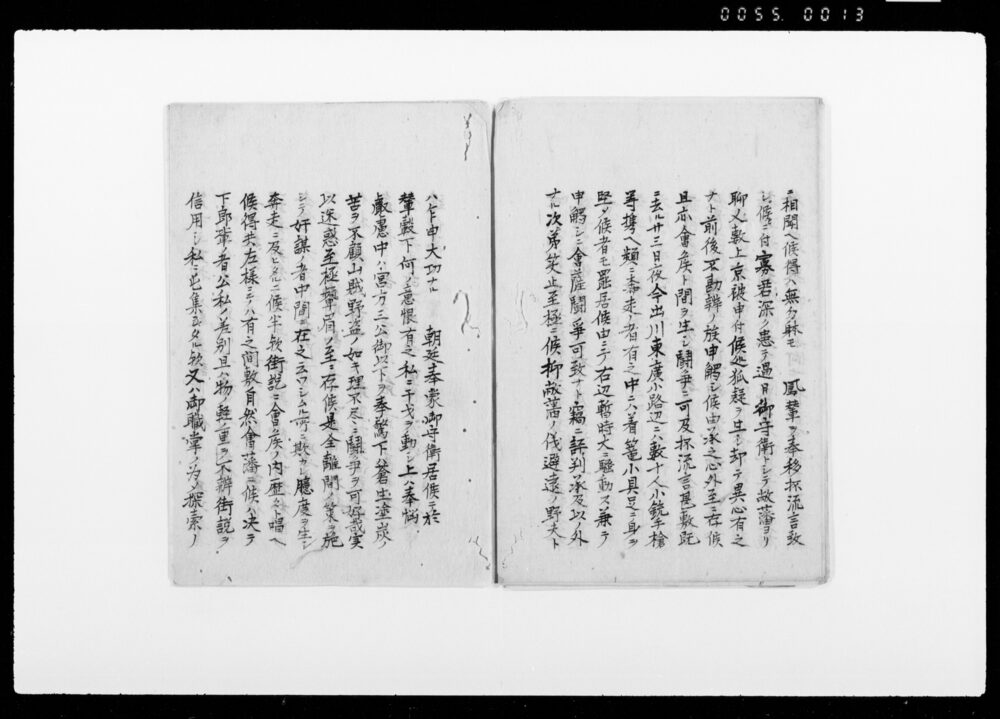 0055. 0013
ニ相聞ヘ候得ハ無勿躰モ　鳳輦ヲ奉移抔流言致
シ候ニ付寡君深ク患テ過日御守衛トシテ敝藩ヨリ
聊人數上京被申付候処狐疑ヲ生シ却テ異心有之
ナト前後不勘辨ノ族申觸シ候由承之心外至ニ存候
且亦會矦ト間ヲ生シ鬪爭ニ可及抔流言甚敷既
ニ去ル廿三日夜今出川東廣小路辺ニハ數十人小銃手槍
等携ヘ類ニ奔走者有之中ニハ着篭小具足ニ身ヲ
堅メ候者モ罷居候由ニテ右辺暫時大ニ騒動ス兼テ
申觸シニ會薩鬪爭可致ナト竊ニ評判承及以ノ外
ナル次第笑止至極ニ候抑敝藩ノ伐邉遠ノ野夫ト
ハ乍申大功ナル　朝廷奉蒙御守衛居候テ於
輦轂下何ノ意恨有之私ニ干戈ヲ動シ上ハ奉悩
叡慮中ハ宮方三公御以下ヲ奉驚下ハ蒼生塗炭ノ
苦ヲ不顧山賊野盗ノ如キ理不尽ニ鬪爭ヲ可好哉実
以迷惑至極顰眉ノ至ニ存候是全離間ノ策ヲ施
シテ奸謀ノ者中間ニ在之云ワシムル所ニ欺カ臆度ヲ生シ
奔走ニ及ヒタルニ候半歟街説ニ會矦ノ内歴々ト唱ヘ
候得共左様ニテハ有之間敷自然會藩ニ候ハ決テ
下郎輩ノ者公私ノ差別且ハ物ノ軽重ヲ不辨街説ヲ
信用シ私ニ屯集致タル歟又ハ御職掌ノ為メ探索ノ